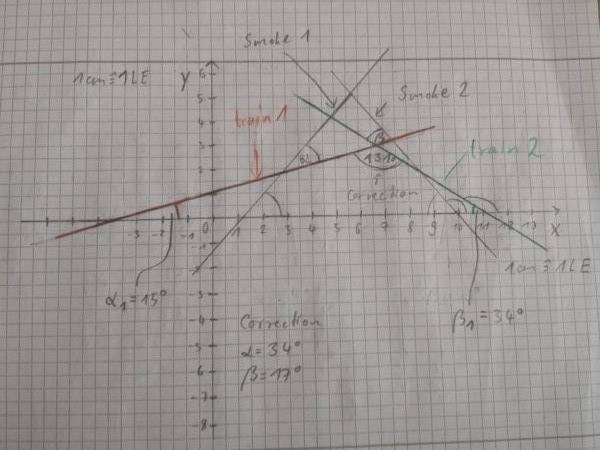 Smoke 1
1cm≙1LE
Y
6
5
Smoke 2
train 1
4
β
3
train 2
2
α
131°
Correction
1
-3 -2 -1 0 1 2 3 4 5 6 7 8 9 10 11 12 13 X
-1
1cm≙1LE
α₁=15°
-3
β₁=34°
-4
Correction
-5
α=34°
-6
β=17°
-7
-8